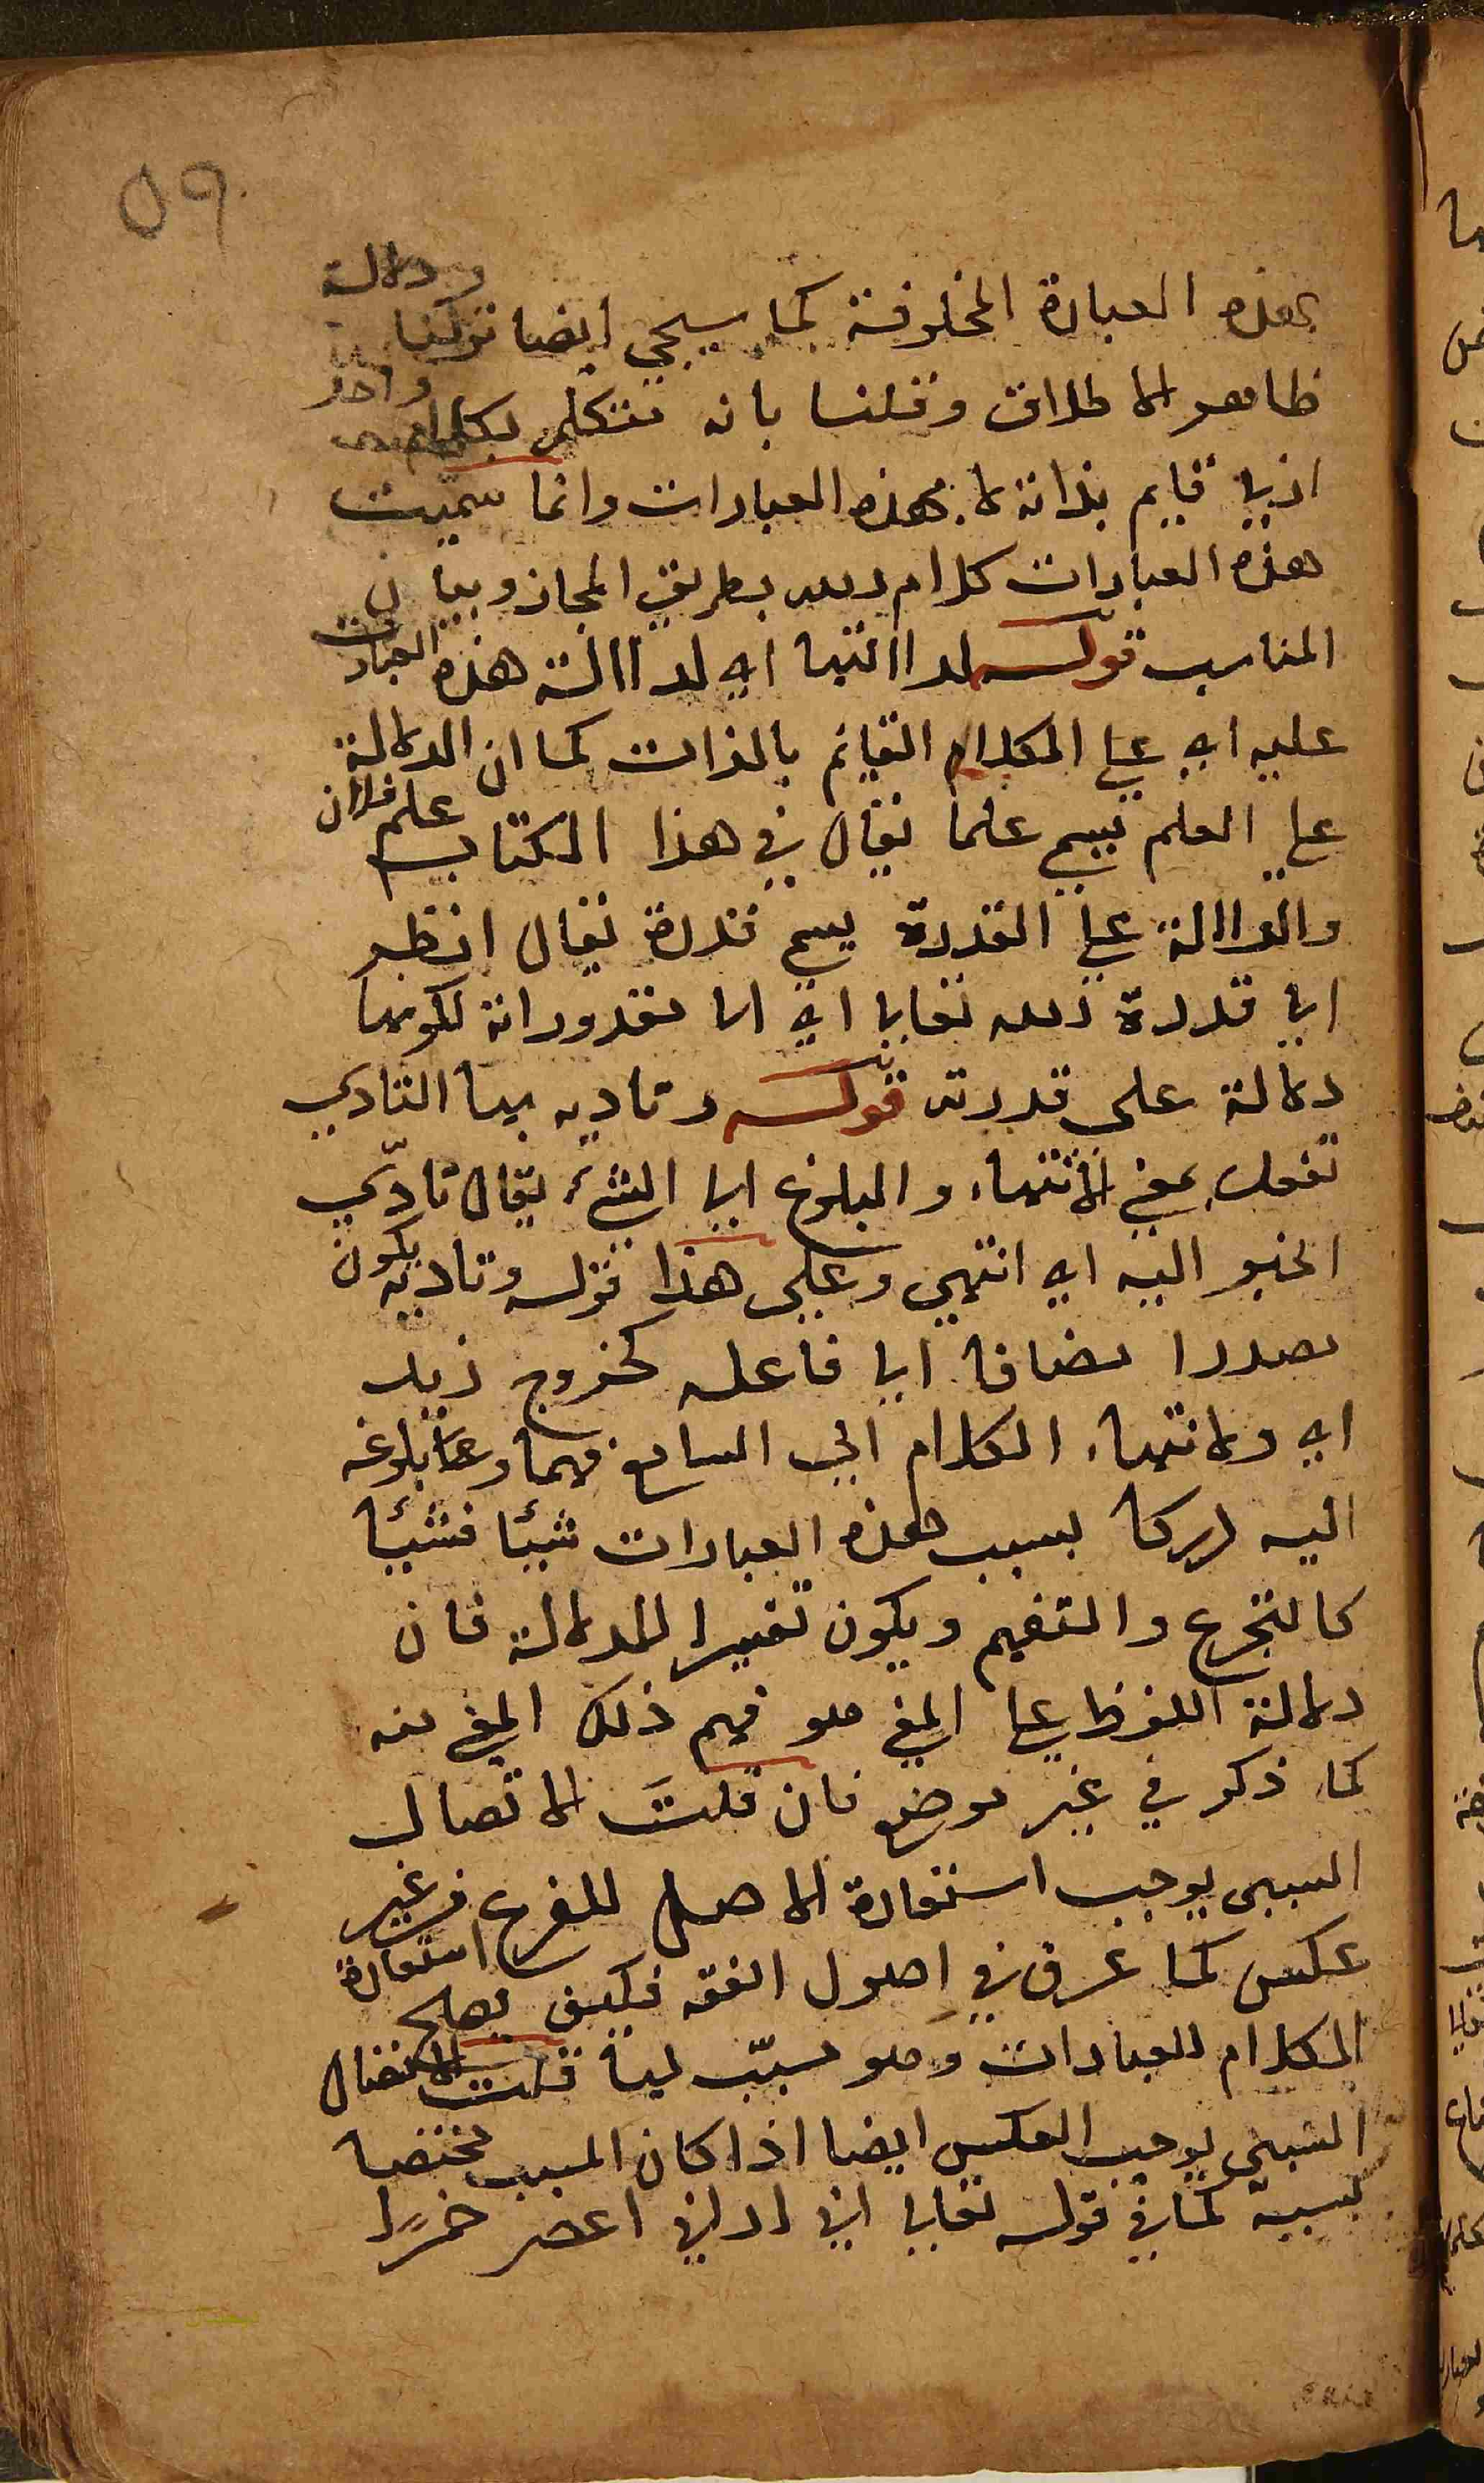 ٥٩
ودلالة
بهذه العبارة المخلوقة كما سيجي ايضا تركنا
ظاهر الاطلاق وقلنا بانه متكلم بكلام واحد
ازلي قايم بذاته لا بهذه العبارات وانما سميت
هذه العبارات كلام الله بطريق المجاز وبيان
المناسب قوله لدلالتها اي لدلالة هذه العبارات
عليه اي على الكلام القايم بالذات كما ان الدلالة
على العلم يسمى علما يقال في هذا الكتاب علم فلان
والدلالة على القدرة يسمى قدرة يقال انظر
الى قدرة الله تعالى اي الى مقدوراته لكونها
دلالة على قدرته قوله وتاديه بها التادي
تفعل بمعنى الانتهاء والبلوغ الى الشيء يقال تادّي
الخبر اليه اي انتهي وعلى هذا قوله وتاديه يكون
مصدرا مضافا الى فاعله كخروج زيد
اي ولانتهاء الكلام الى السامع فهما وعلما بلوغه
اليه دركا بسبب هذه العبارات شيئا فشيئا
كالتجرع والتفهم ويكون تفسيرا للدلالة فان
دلالة اللفظ على المعنى هو فهم ذلك المعنى منه
كما ذكر في غير موضع فان قلتَ الاتصال
السببي يوجب استعارة الاصل للفرع من غير
عكس كما عرف في اصول الفقه فكيف يصلح استعارة
الكلام للعبارات وهو مسبّب لها قلت الاتصال
السببي يوجب العكس ايضا اذا كان المسبب مختصا
بسببه كما في قوله تعالى اني اراني اعصر خمرًا